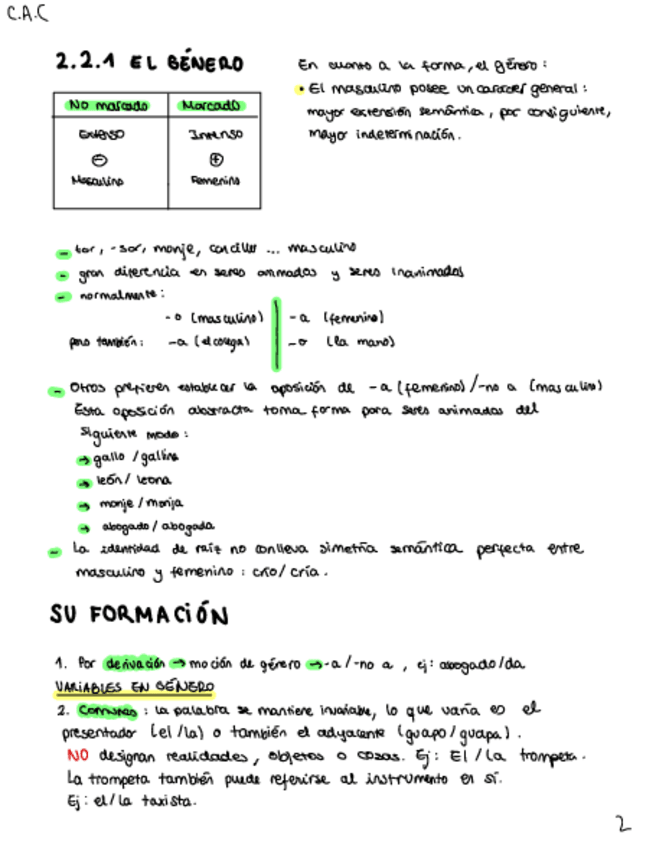 C.A.C
2.2.1 EL GÉNERO
En cuanto a la forma, el género:
• El masculino posee un carácter general:
mayor extensión semántica, por consiguiente,
mayor indeterminación.
No marcado Marcado
Extenso Intenso
⊖ ⊕
Masculino Femenino
- tor, -sor, monje, canciller ... masculino
- gran diferencia en seres animados y seres inanimados
- normalmente:
-o (masculino) | -a (femenino)
pero también: -a (el colega) | -o (la mano)
- Otros prefieren establecer la oposición de -a (femenino) / -no a (masculino)
Esta oposición abstracta toma forma para seres animados del
siguiente modo:
→ gallo / gallina
→ león / leona
→ monje / monja
→ abogado / abogada
- La identidad de raíz no conlleva simetría semántica perfecta entre
masculino y femenino: crío/ cría.
SU FORMACIÓN
1. Por derivación → moción de género → -a / -no a, ej: abogado/da
VARIABLES EN GÉNERO
2. Comunes: la palabra se mantiene invariable, lo que varía es el
presentador (el /la) o también el adyacente (guapo/guapa).
NO designan realidades, objetos o cosas. Ej: El / la trompeta.
La trompeta también puede referirse al instrumento en sí.
Ej: el/la taxista.
2